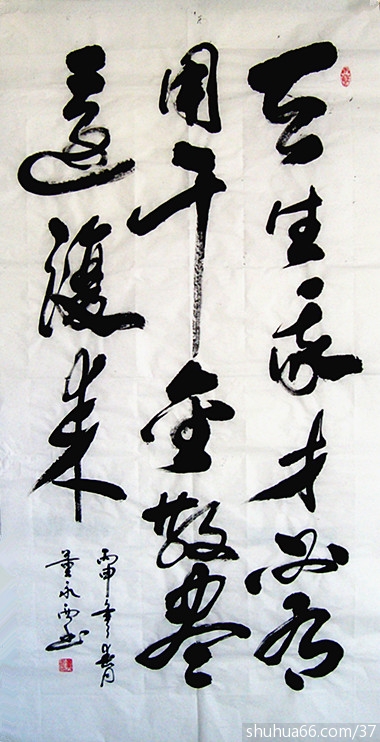 天生我才必有
用千金散尽
还复来
丙申年春月
董永西书
shuhua66.com/37